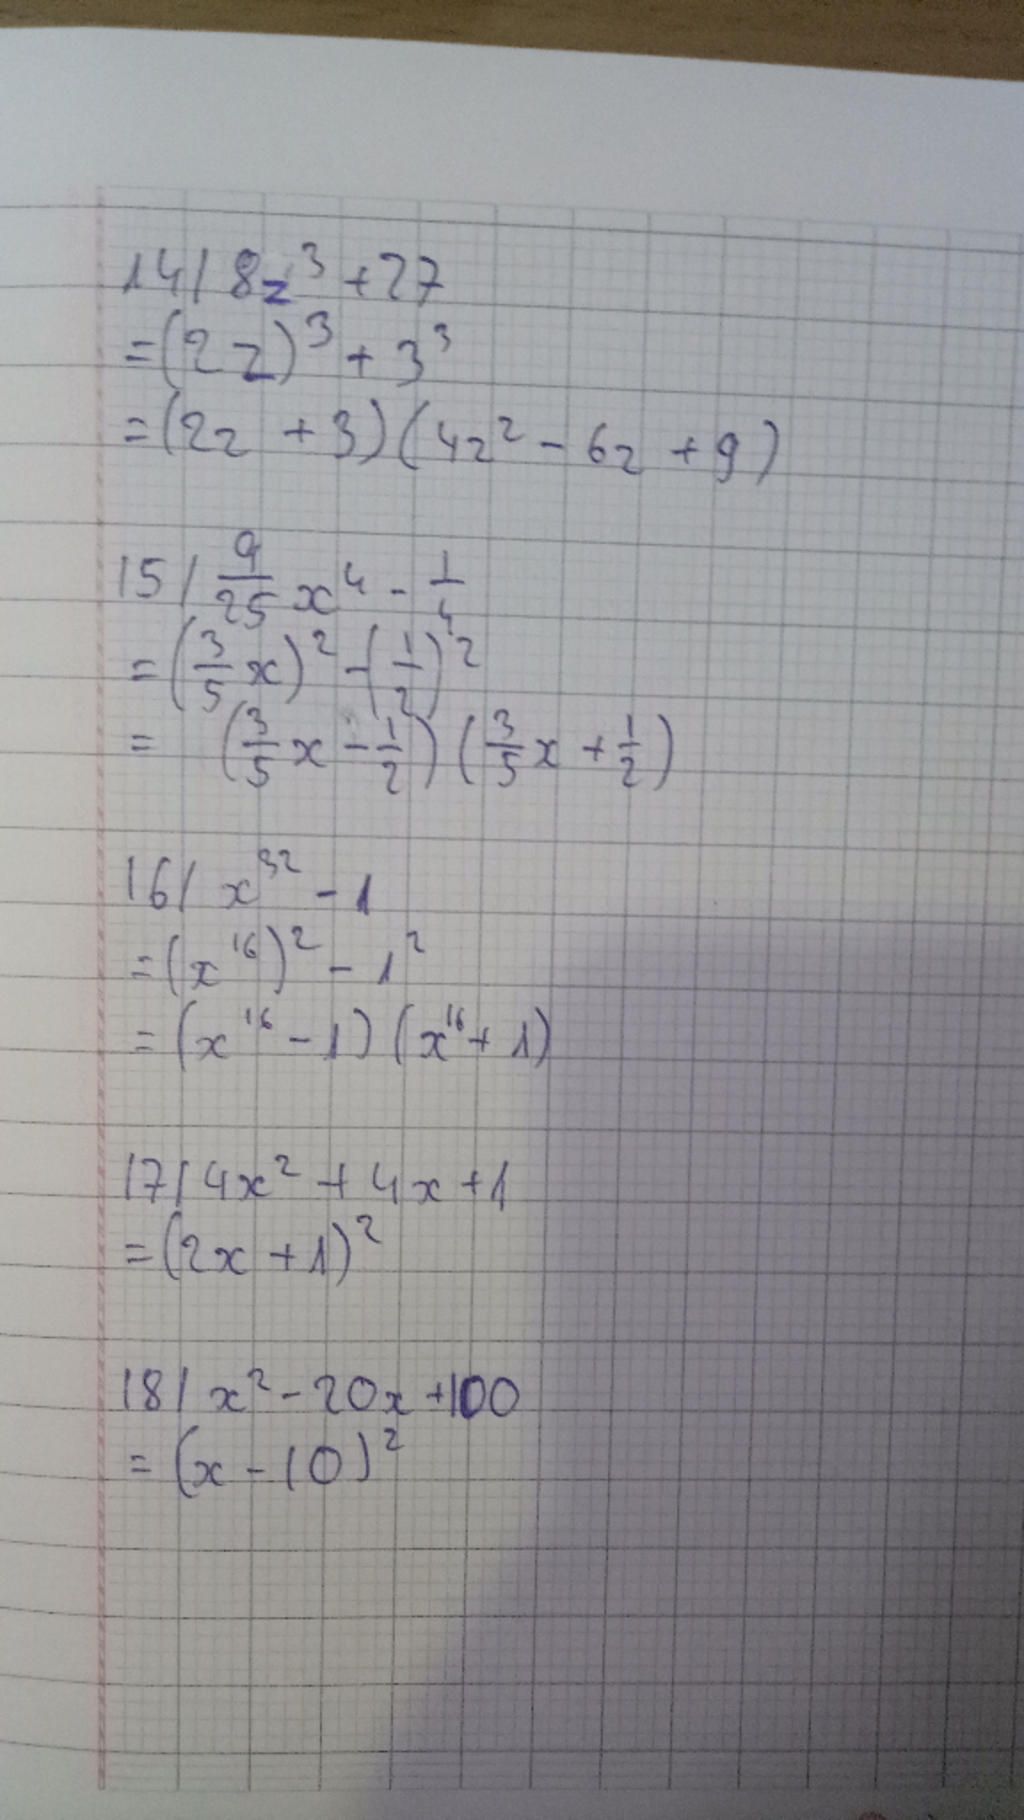 14/ 8z³ + 27
= (2z)³ + 3³
= (2z + 3)(4z² - 6z + 9)
15/ 9/25 x⁴ - 1/4
= (3/5 x)² - (1/2)²
= (3/5 x - 1/2)(3/5 x + 1/2)
16/ x³² - 1
= (x¹⁶)² - 1²
= (x¹⁶ - 1)(x¹⁶ + 1)
17/ 4x² + 4x + 1
= (2x + 1)²
18/ x² - 20x + 100
= (x - 10)²